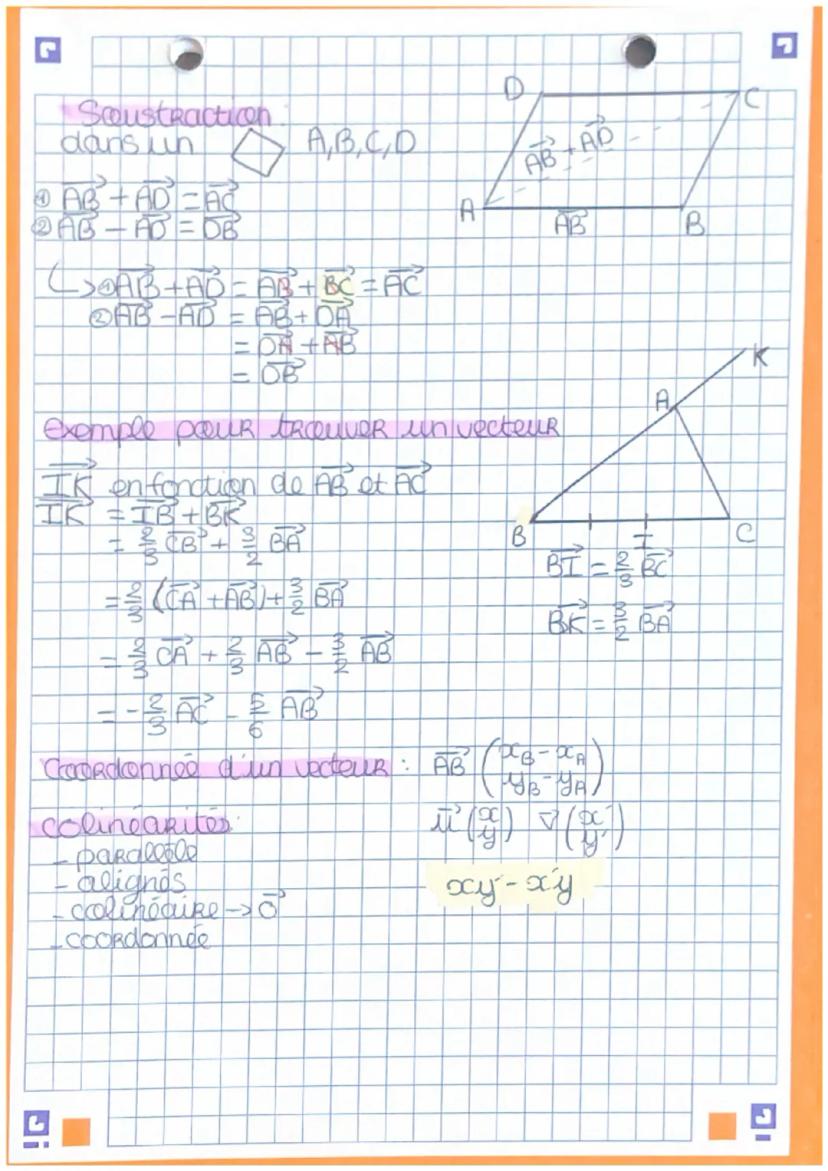 Soustraction:
dans un A, B, C, D
① AB⃗ + AD⃗ = AC⃗
② AB⃗ - AD⃗ = DB⃗
↳ ① AB⃗ + AD⃗ = AB⃗ + BC⃗ = AC⃗
② AB⃗ - AD⃗ = AB⃗ + DA⃗
= DA⃗ + AB⃗
= DB⃗
D
C
AB⃗ + AD⃗
A
AB⃗
B
Exemple pour trouver un vecteur
IK⃗ en fonction de AB⃗ et AC⃗
IK⃗ = IB⃗ + BK⃗
= 2/3 CB⃗ + 3/2 BA⃗
= 2/3 (CA⃗ + AB⃗) + 3/2 BA⃗
= 2/3 CA⃗ + 2/3 AB⃗ - 3/2 AB⃗
= - 2/3 AC⃗ - 5/6 AB⃗
K
A
B
I
C
BI⃗ = 2/3 BC⃗
BK⃗ = 3/2 BA⃗
Coordonnée d'un vecteur : AB⃗ (xB - xA
yB - yA)
colinéarités:
- parallèle
- alignés
- colinéaire → 0⃗
- coordonnée
u⃗ (x y) v⃗ (x' y')
xy' - x'y